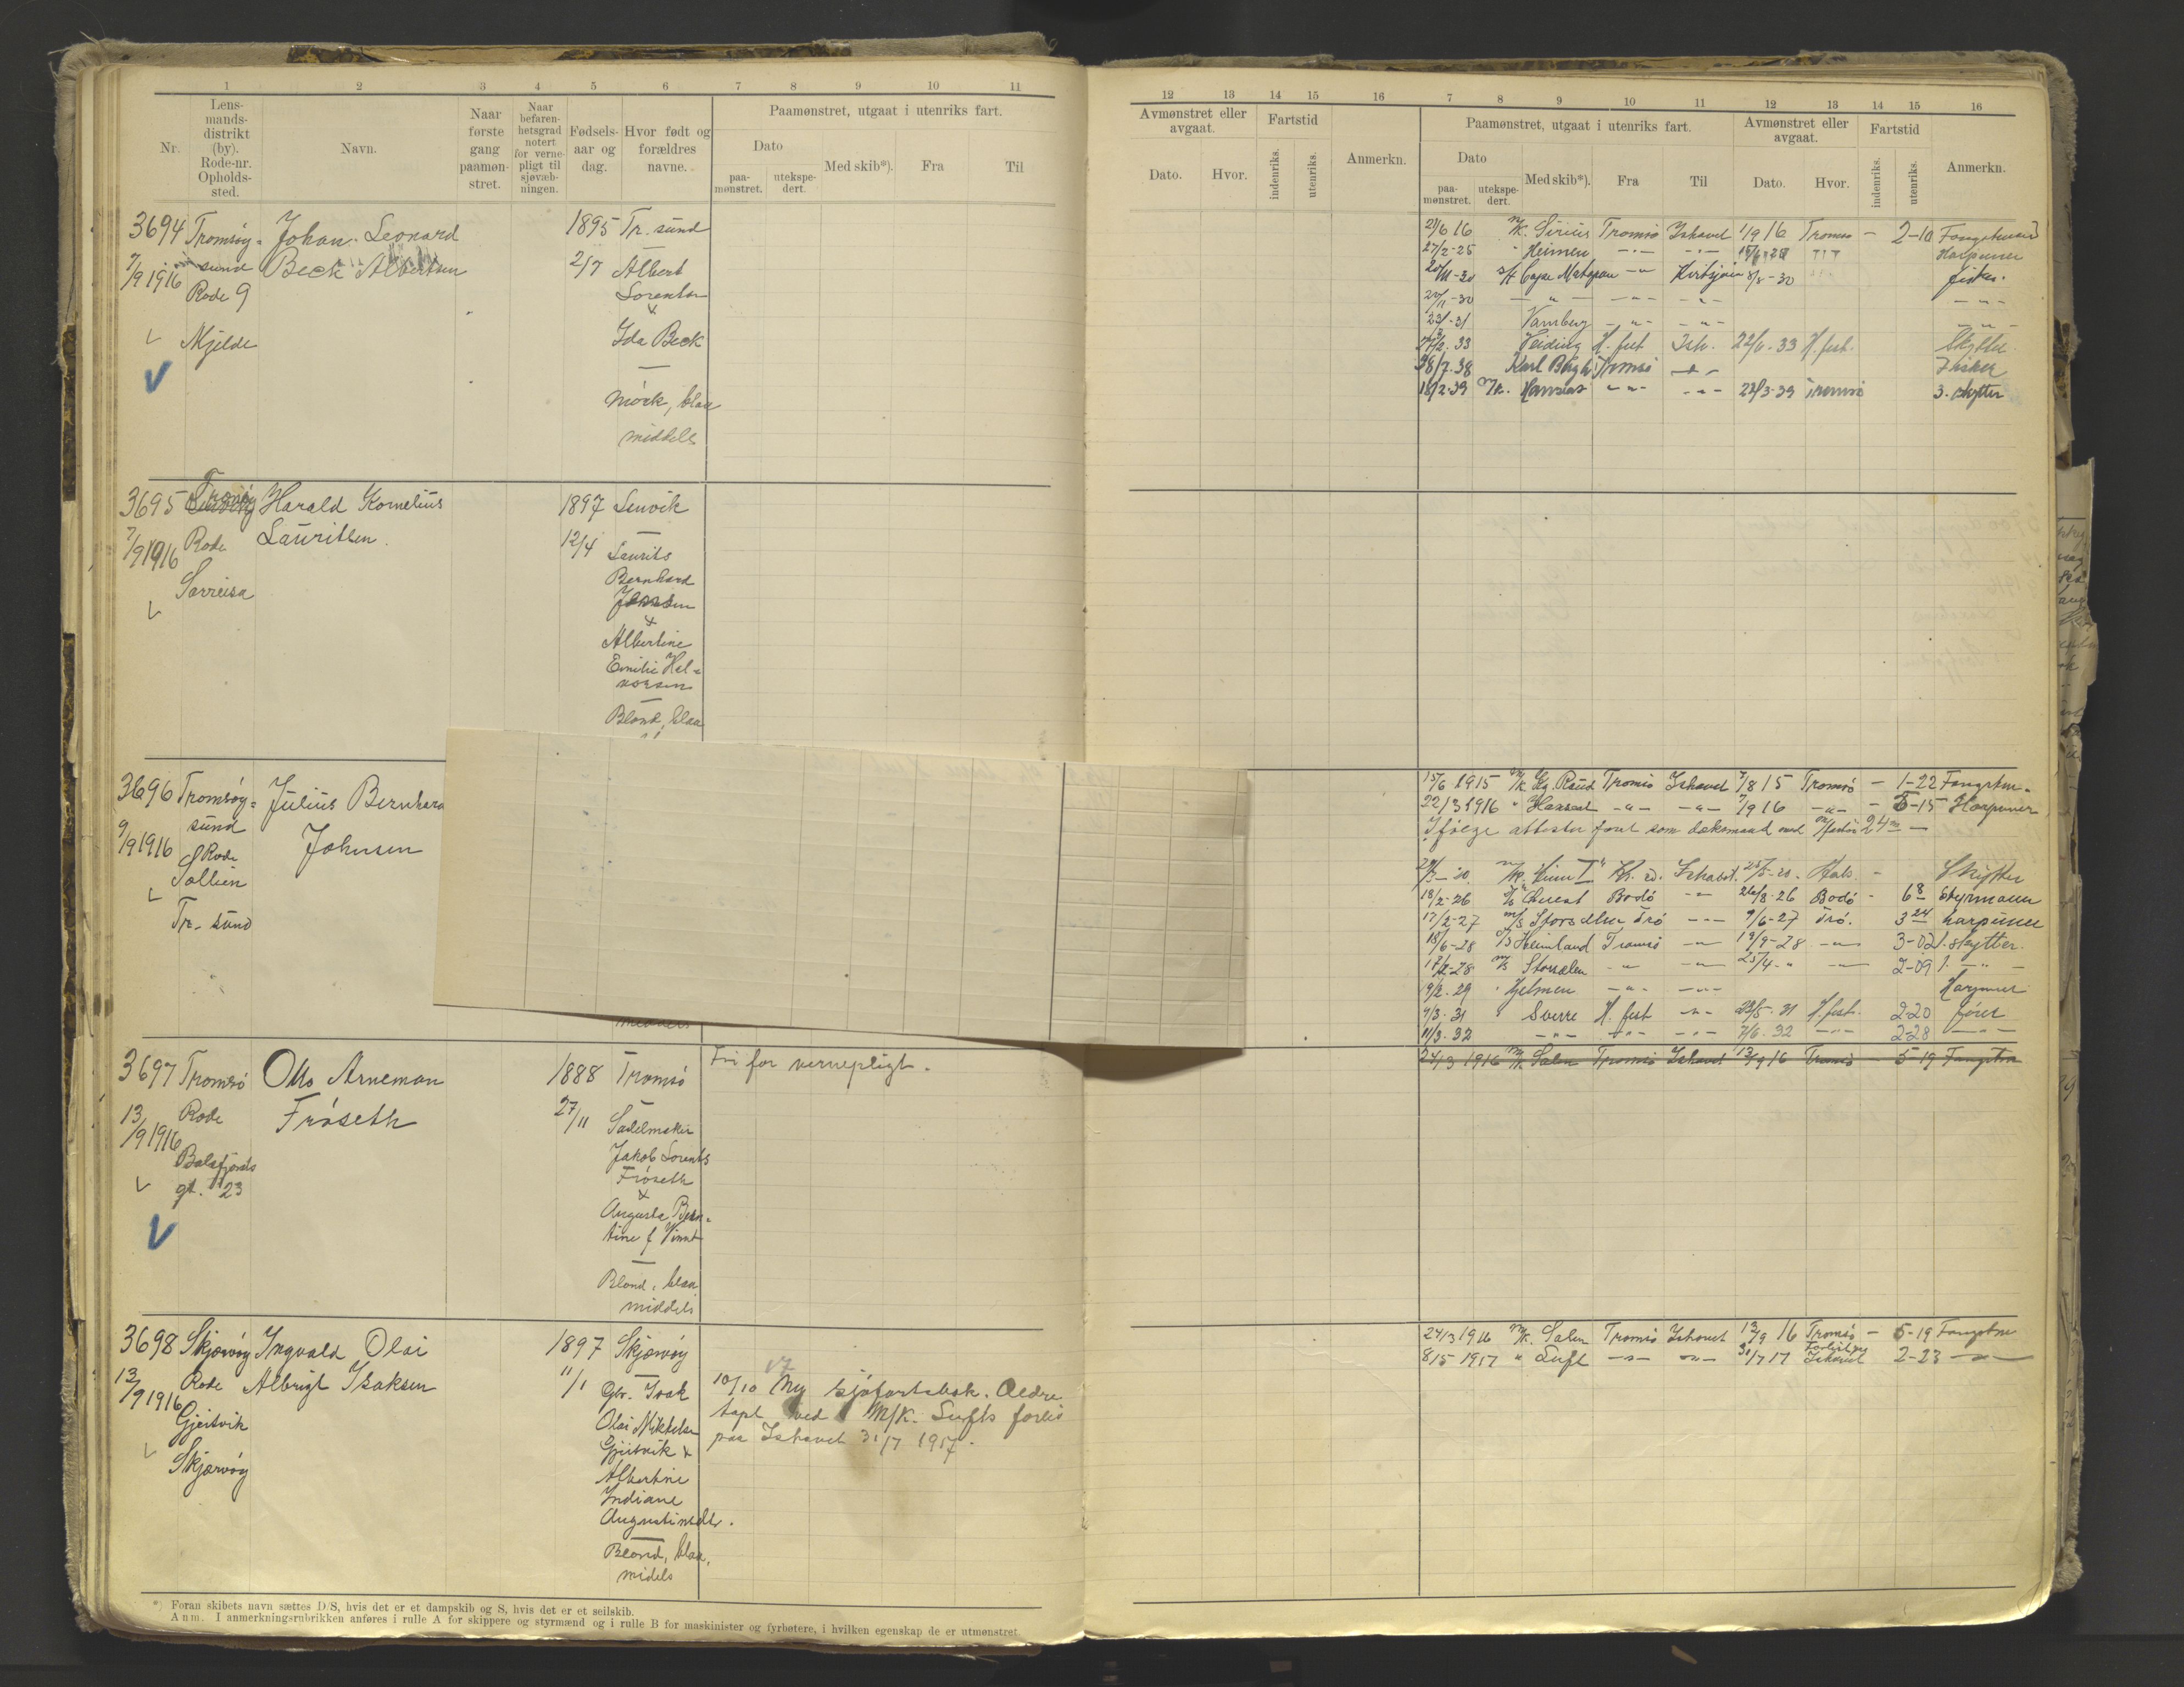 1 2 3 4 5 6 7 8 9 10 11
Nr.
Lens-
mands-
distrikt
(by).
Rode-nr.
Opholds-
sted.
Navn.
Naar
første
gang
paamøn-
stret.
Naar
befaren-
hetsgrad
notert
for verne-
pligt til
sjøvæb-
ningen.
Fødsels-
aar og
dag.
Hvor født og
forældres
navne.
Paamønstret, utgaat i utenriks fart.
Dato
paa-
mønstret.
utekspe-
dert.
Med skib*).
Fra
Til
3694 Tromsøy-
sund
7/9 1916
Rode 9
Mjelde
Johan Leonard
Beck Albertsen
1895
2/7
Tr. sund
Albert
Lorentsen
&
Ida Beck
Mörk, blaa
middels
3695 Tranøy
7/9 1916
Rode
Sørreisa
Harald Kornelius
Lauritsen.
1897
12/4
Lenvik
Laurits
Bernhard
Jensen
&
Albertine
Emilie Hal-
vorsen
Blond, blaa
3696 Tromsøy-
sund
9/9 1916
Rode
Sollien
Tr. sund
Julius Bernhard
Johnsen
middels
3697 Tromsö
13/9 1916
Rode
Balsfjords
gt. 23
Otto Arneman
Fröseth
1888
27/11
Tromsö
Sadelmaker
Jakob Lorents
Fröseth
&
Augusta Bern-
tine f
Blond, blaa
middels
Fri for vernepligt.
3698 Skjærvöy
13/9 1916
Rode
Gjeitvik
Skjærvöy
Ingvald Olai
Albrigt Isaksen
1897
11/1
Skjærvöy
Gbr. Isak
Olai Mikkelsen
Gjeitvik &
Albertine
Indiane
Augustinsdtr.
Blond, blaa,
midels
10/10 17 Ny sjöfartsbok. Ældre
tapt ved M/K. Lufts forlis
paa Ishavet 31/7 1917.
*) Foran skibets navn sættes D/S, hvis det er et dampskib og S, hvis det er et seilskib.
Anm. I anmerkningsrubrikken anføres i rulle A for skippere og styrmænd og i rulle B for maskinister og fyrbøtere, i hvilken egenskap de er utmønstret.
12 13 14 15 16 7 8 9 10 11 12 13 14 15 16
Avmønstret eller
avgaat.
Dato.
Hvor.
Fartstid
indenriks.
utenriks.
Anmerkn.
Paamønstret, utgaat i utenriks fart.
Dato
paa-
mønstret.
utekspe-
dert.
Med skib*).
Fra
Til
Avmønstret eller
avgaat.
Dato.
Hvor.
Fartstid
indenriks.
utenriks.
Anmerkn.
21/6 16 M/K. Sirius Tromsö Ishavet 1/9 16 Tromsö - 2-10 Fangstmand
27/2-25 " Heimen -"- -"- Harpuner
S/S Cape Matapan -"- 8/8-30 fisker.
20/11-30 -"- -"- -"- -"-
Varnberg -"- -"- -"-
Veiding H. fest Ish. 22/6-33 H.fest. Skytter
28/7-38 Karl Bergh Tromsö -"- Fisker
18/2-39 M/K. Havsæl -"- -"- 22/3-39 Tromsö 3. skytter
15/6 1915 M/K Kg. Raud Tromsö Ishavet 7/8 15 Tromsö - 1-22 Fangstm.
22/3 1916 " Havsæl -"- -"- 7/9 16 -"- - 5-15 Harpuner
Ifölge attester faret som dæksmand med 24 m
Ishavet. Skytter
18/2-26 Quest Bodö -"- 26/8-26 Bodö - 6 8 Styrmann
17/2-27 M/S Trö -"- 9/6-27 Trö. 3 24 harpuner
18/6-28 Heimland Tromsö -"- 19/9-28 -"- 3-02 1. skytter.
17/2-28 M/S Storsælen -"- -"- 25/4-" -"- 2-09 1. -"-
9/2-29 " Hjelmen -"- -"- Harpuner
4/3-31 " Sverre H. fest -"- 23/5-31 H.fest. 2-20 förer
11/3-32 -"- -"- -"- 7/6-32 -"- 2-28 -"-
24/3 1916 M/K. Salen Tromsö Ishavet 13/9 16 Tromsö - 5-19 Fangstm
24/3 1916 M/K. Salen Tromsö Ishavet 13/9 16 Tromsö - 5-19 Fangstm
8/5 1917 " Luft -"- -"- 31/7 17 Forlist paa
Ishavet 2-23 -"-